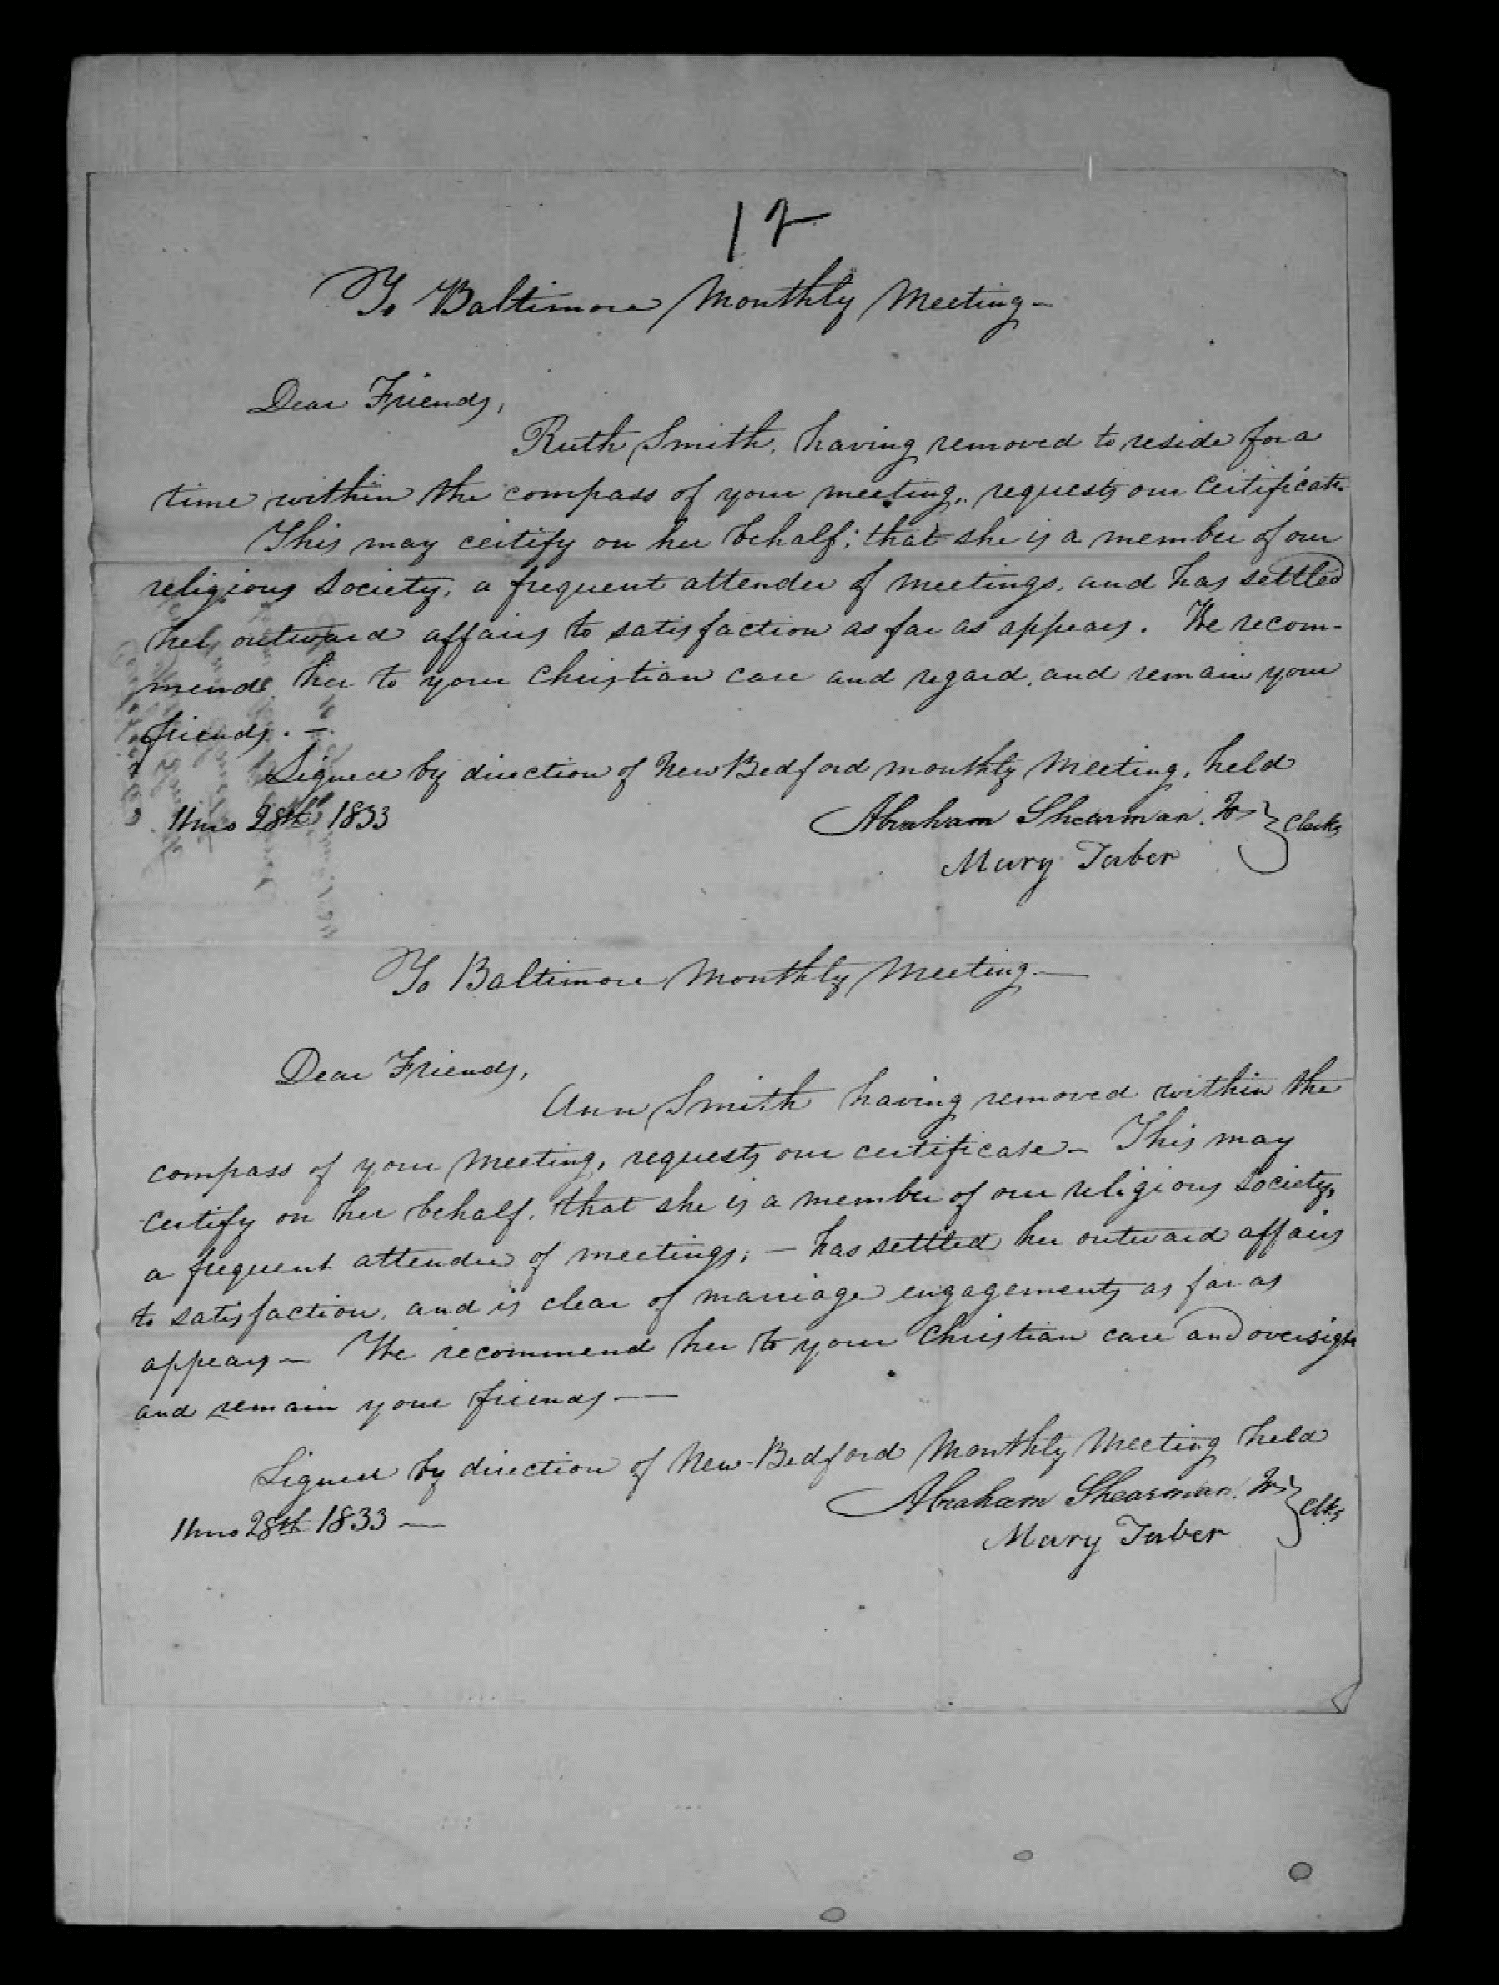 12
To Baltimore Monthly Meeting —
Dear Friends,
Ruth Smith, having removed to reside for a
time within the compass of your meeting, requests our certificate
This may certify on her behalf; that she is a member of our
religious society, a frequent attender of meetings, and has settled
her outward affairs to satisfaction as far as appears. We recom-
mend her to your christian care and regard, and remain your
friends. —
Signed by direction of New Bedford monthly Meeting, held
11mo 28th 1833
Abraham Shearman Jr } Clerks
Mary Taber
To Baltimore Monthly Meeting —
Dear Friends,
Ann Smith having removed within the
compass of your Meeting, requests our certificate — This may
certify on her behalf, that she is a member of our religious society,
a frequent attender of meetings; — has settled her outward affairs
to satisfaction, and is clear of marriage engagements as far as
appears — We recommend her to your christian care and oversight
and remain your friends —
Signed by direction of New-Bedford Monthly Meeting held
11mo 28th 1833 —
Abraham Shearman Jr } Clks
Mary Taber